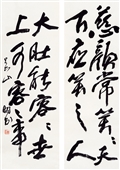 慈顔常笑笑天
下應笑之人
大肚能容容世
上可容之事